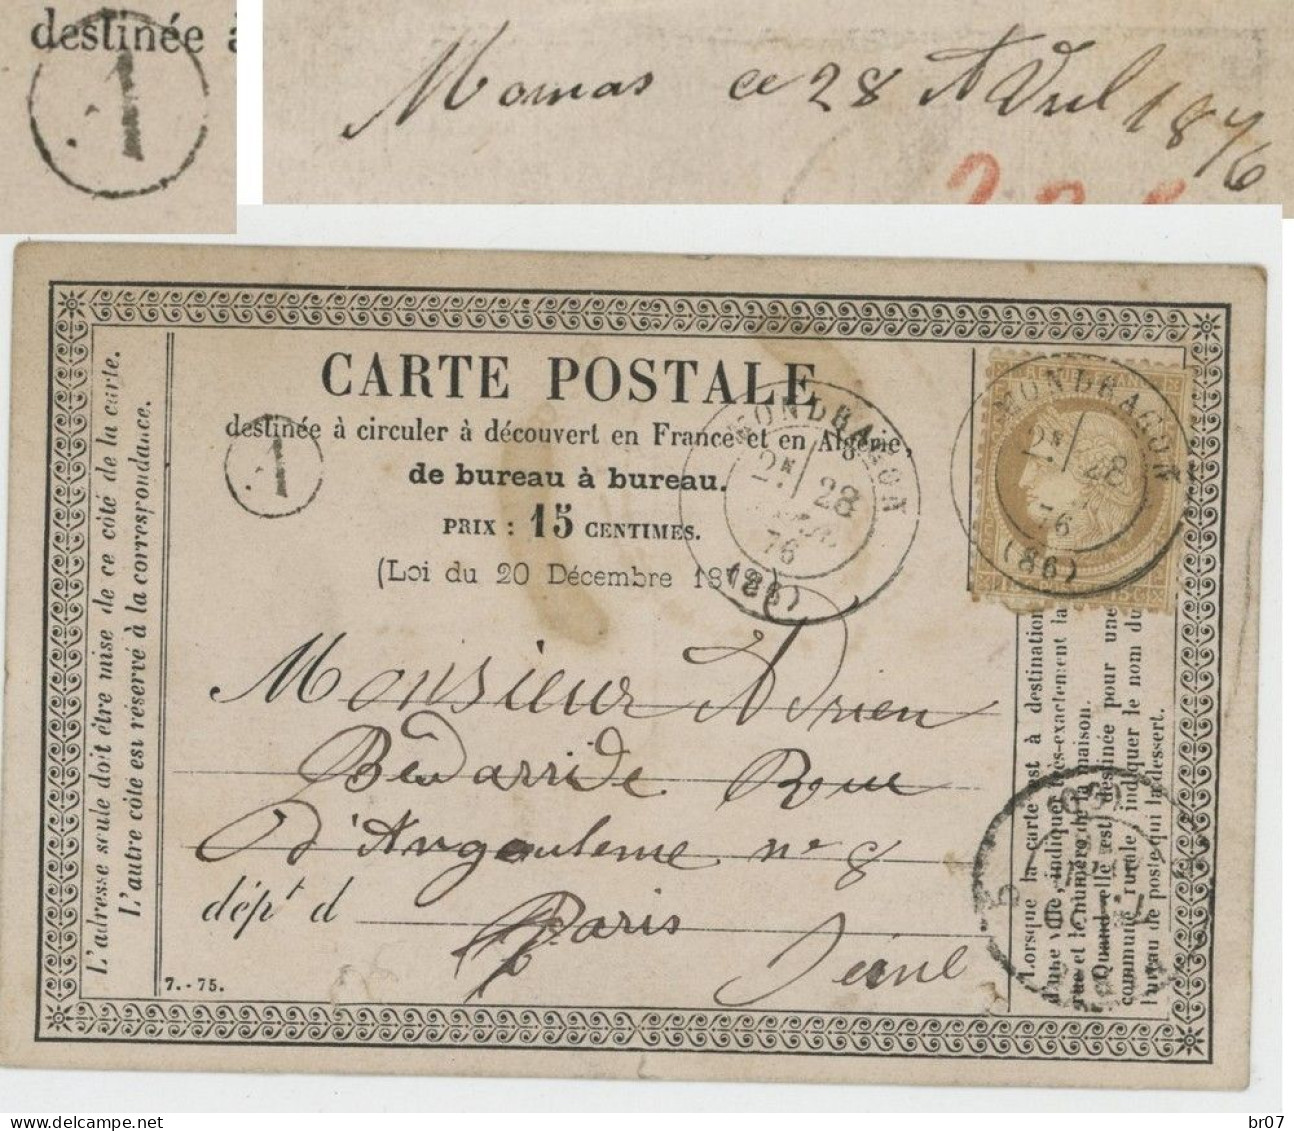 destinée à
1
Mornas ce 28 Avril 1876
CARTE POSTALE
destinée à circuler à découvert en France et en Algérie,
de bureau à bureau.
PRIX : 15 CENTIMES.
(Loi du 20 Décembre 187
1
MONDRAGON
2E
28
76
(86)
MONDRAGON
2E
28
76
(86)
15 C
Monsieur Adrien
Bédarride Rue
d'Angouleme nº 8
dépt d Paris
Seine
7.-75.
L'adresse seule doit être mise de ce côté de la carte.
L'autre côté est réservé à la correspondance.
Lorsque la carte est à destination
d'une ville, indiquer très-exactement la
rue et le numéro de la maison.
Quand elle est destinée pour une
commune rurale indiquer le nom du
bureau de poste qui la dessert.
br07